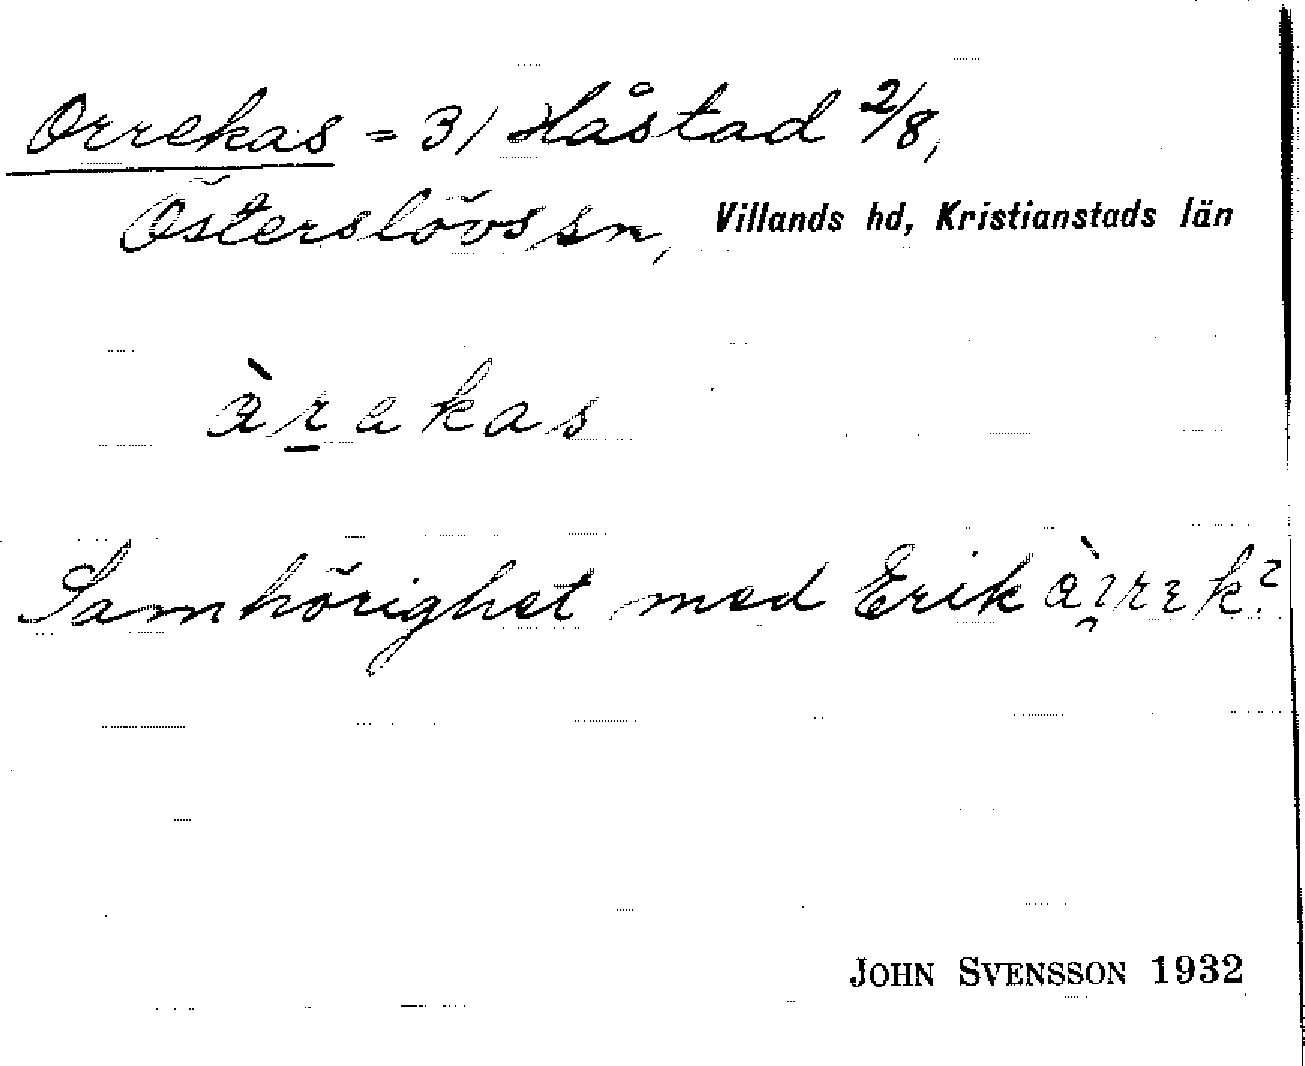 Orrekas = 3/ Håstad 2/8,
Österslövs sn, Villands hd, Kristianstads län
àrakas
Samhörighet med Erik
JOHN SVENSSON 1932